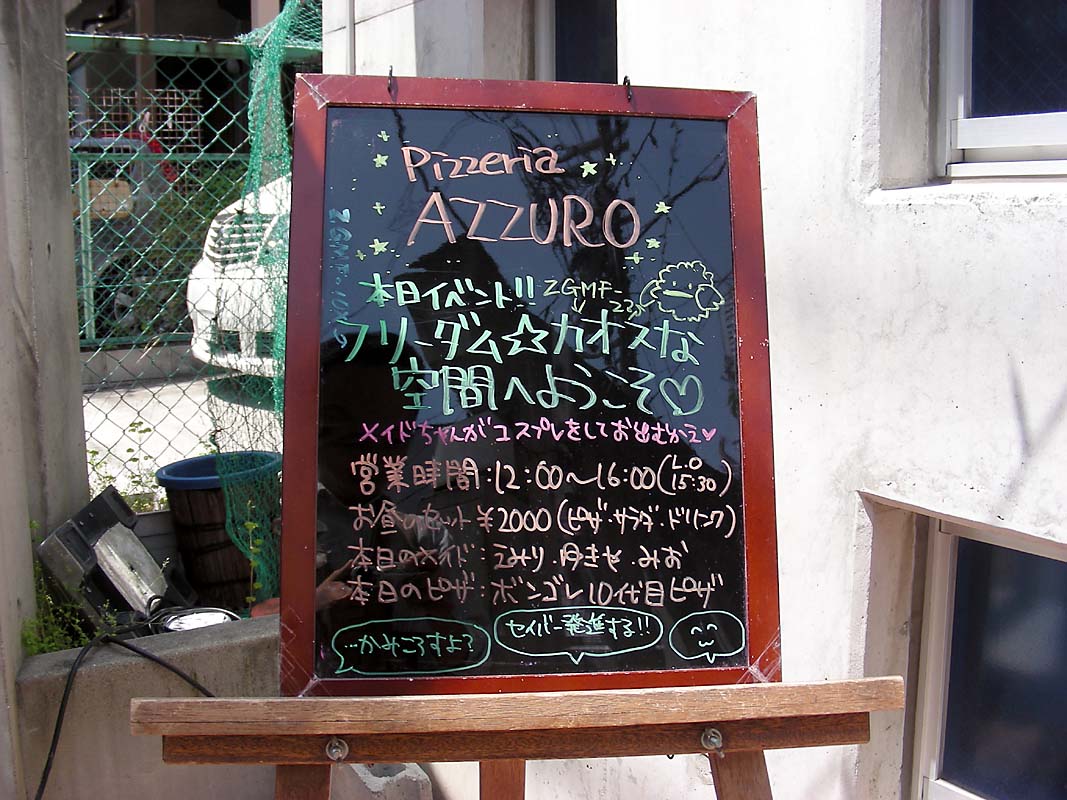 Pizzeria
AZZURO
本日イベント!!
ZGMF-
23
フリーダム☆カオスな
空間へようこそ♡
メイドちゃんがコスプレをしてお出むかえ♥
営業時間:12:00～16:00(L.O 15:30)
お昼のセット ¥2000(ピザ・サラダ・ドリンク)
本日のメイド:えみり・ゆきや・みお
本日のピザ:ボンゴレ10代目ピザ
…かみころすよ?
セイバー発進する!!